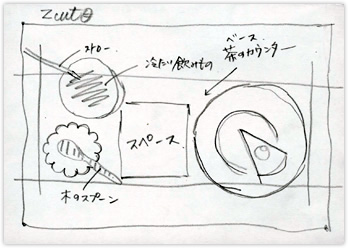 2cut
ストロー
冷たい飲みもの
ベース
茶のカウンター
スペース
木のスプーン